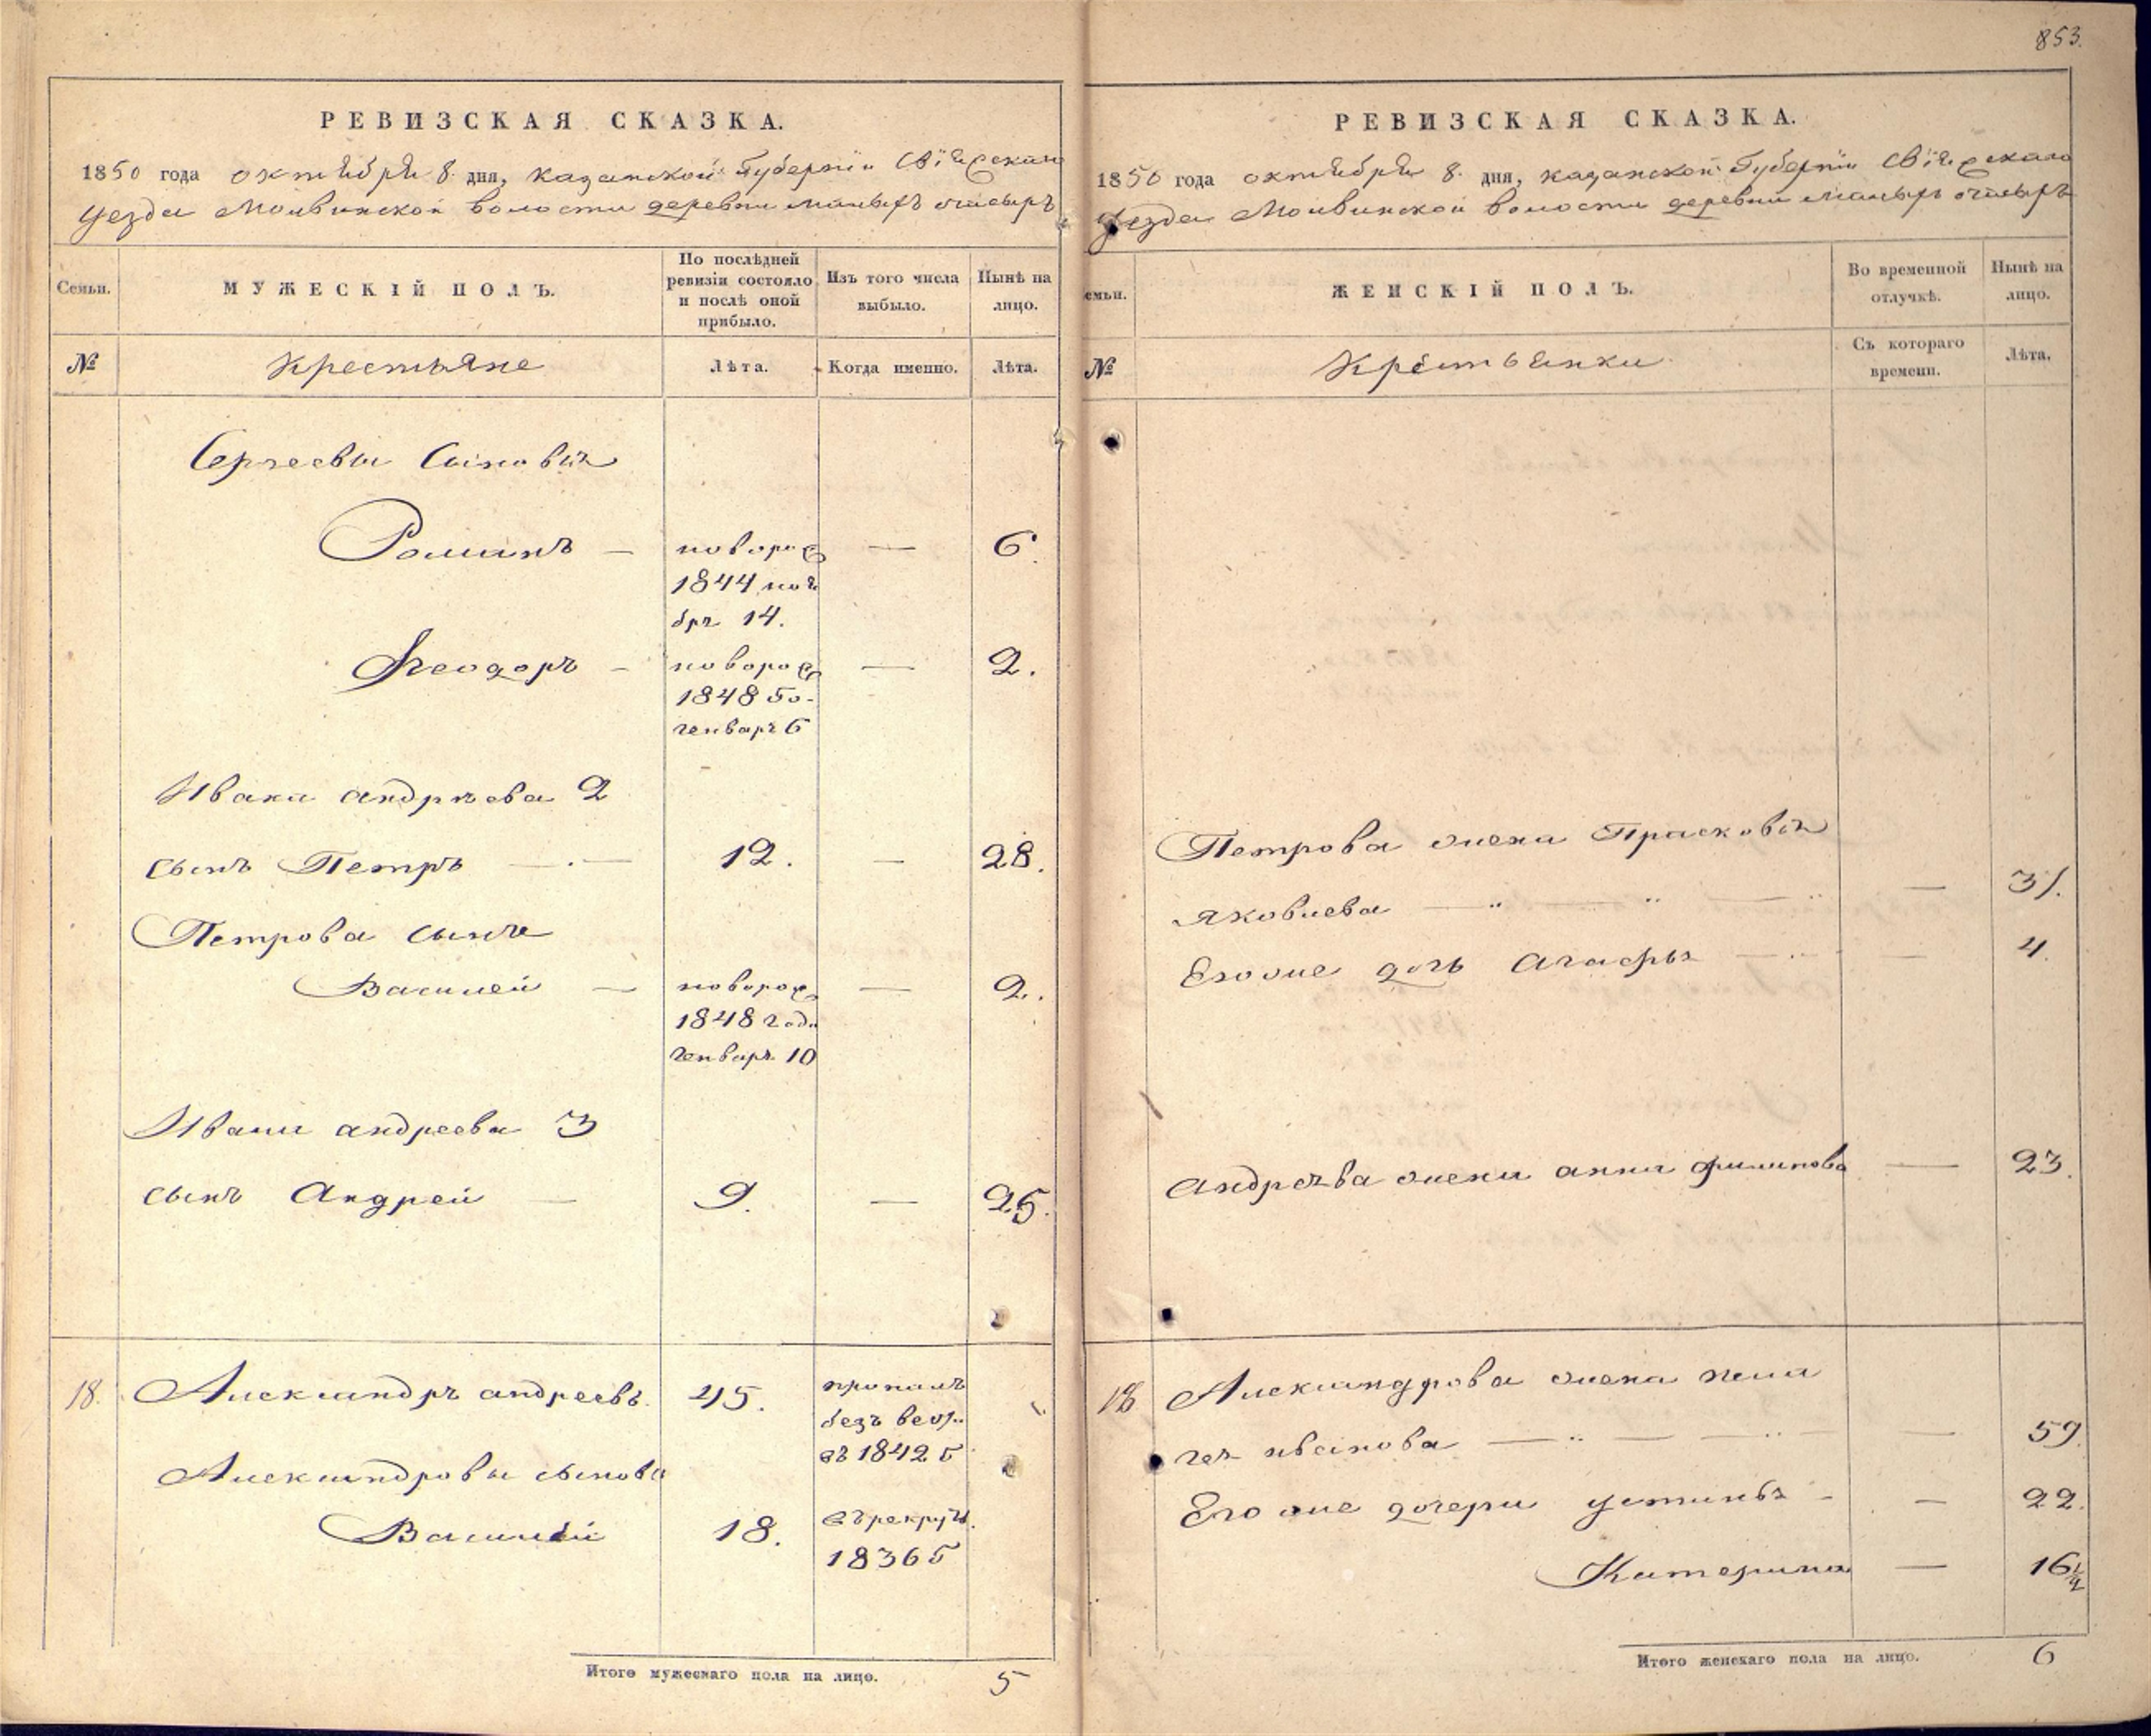 853.
РЕВИЗСКАЯ СКАЗКА.
1850 года октября 8 дня, казанской Губернiи Свiяжскаго
уезда Молвинской волости деревни
Семьи.
МУЖЕСКIЙ ПОЛЪ.
По послѣдней ревизiи состояло и послѣ оной прибыло.
Изъ того числа выбыло.
Нынѣ на лицо.
№
Крестьяне
Лѣта.
Когда именно.
Лѣта.
Сергеевы Сыновья
Романъ — новорож — 6.
1844 ноя
бря 14.
Ѳеодоръ — новорож — 2.
1848 го-
генваря 6
Ивана андрѣева 2
сынъ Петръ — 12. — 28.
Петрова сынъ
Василей — новорож — 2.
1848 года
генваря 10
Ивана андреева 3
сынъ Андрей — 9. — 25.
18. Александръ андреевъ. 45. пропалъ
безъ вести
въ 1842 г
Александровы сыновья
Василей 18. въ рекруты
1836 г
Итого мужескаго пола на лицо. 5
РЕВИЗСКАЯ СКАЗКА.
1850 года октября 8. дня, казанской Губернiи Свiяжскаго
уезда Молвинской волости деревни
емьи.
ЖЕНСКIЙ ПОЛЪ.
Во временной отлучкѣ.
Нынѣ на лицо.
№
Крестьянки
Съ котораго времени.
Лѣта.
Петрова жена Прасковья
яковлева — 31.
Его же дочь Агафья — 4.
Андреева жена анна филипова — 23.
18 Александрова жена пела
гея иванова — 59.
Его же дочери устинья — 22.
Катерина — 16 1/2
Итого женскаго пола на лицо. 6